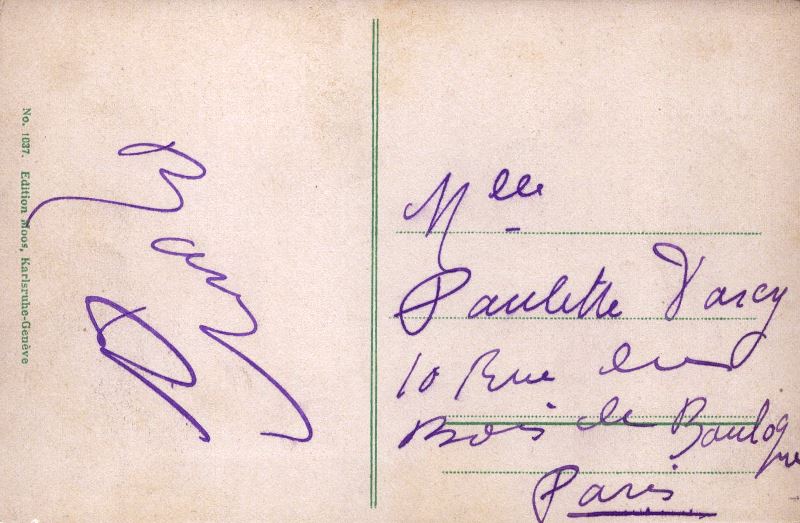 No. 1037. Edition Moos, Karlsruhe-Genève
Mlle
Paulette Darcy
10 Rue du
Bois de Boulogne
Paris